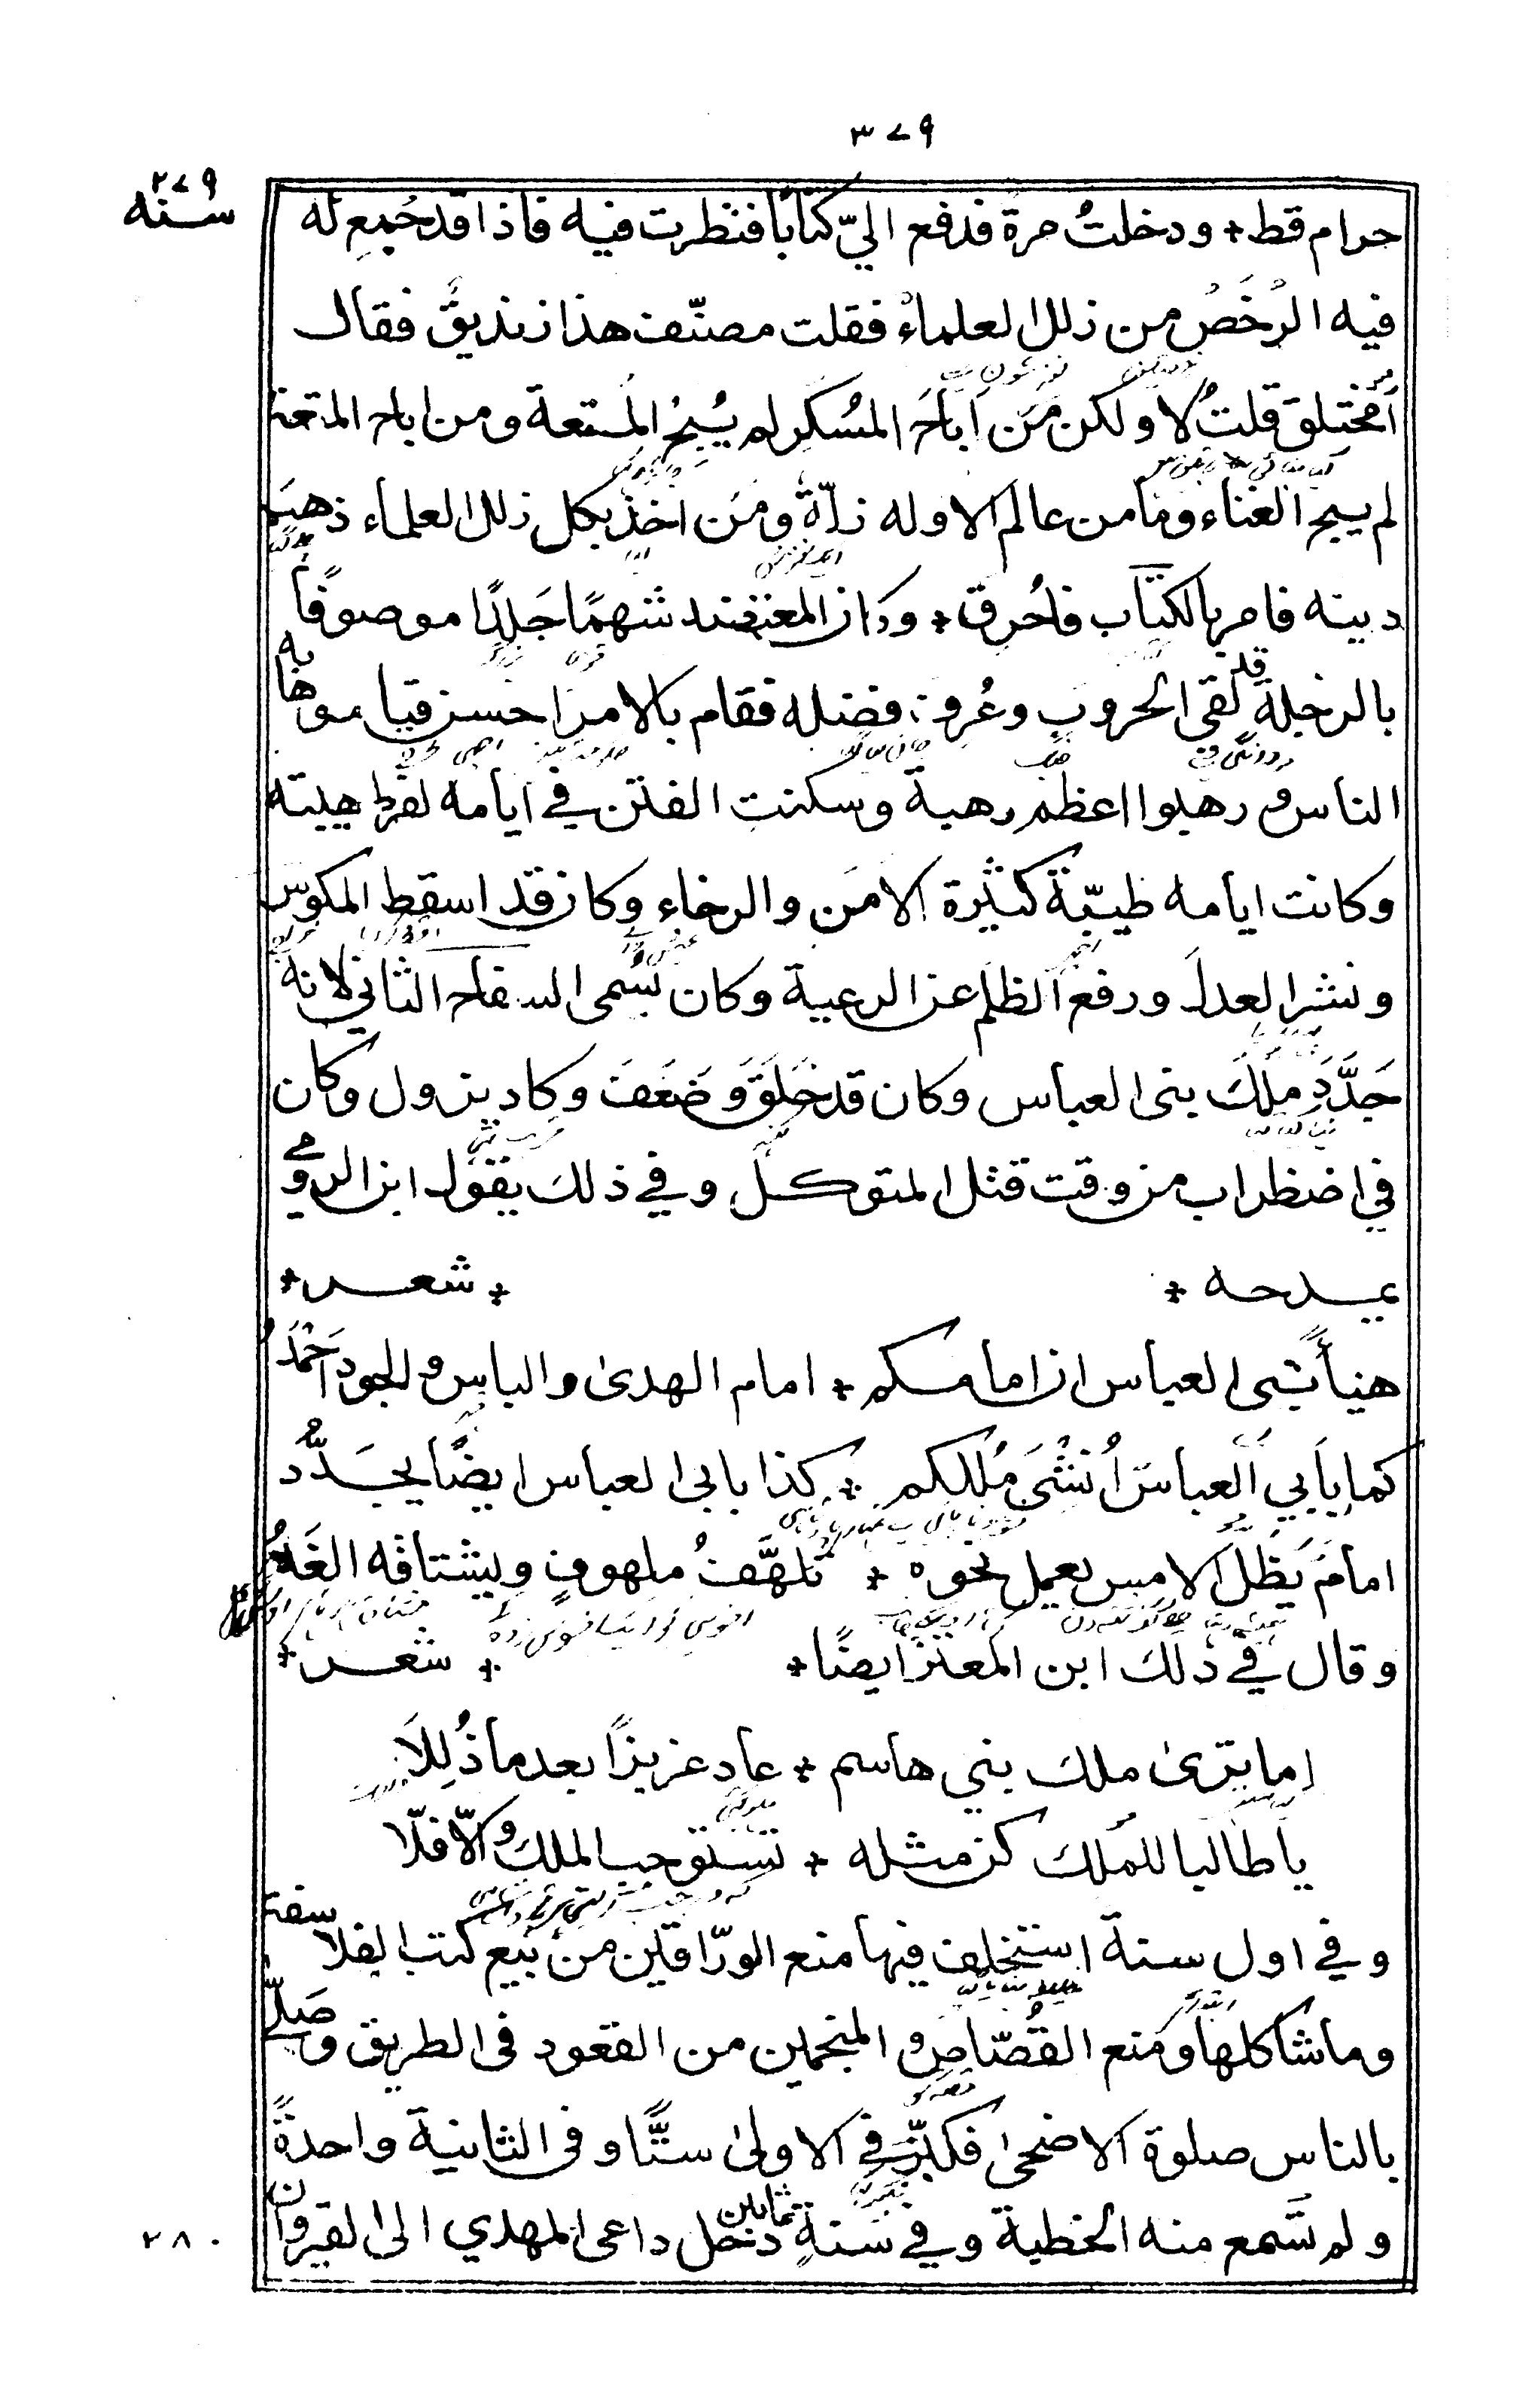 ٣٧٩
سنه ٢٧٩
حرام قط * ودخلتُ مرة فدفع اليّ كتابًا فنظرت فيه فاذا قد جُمِع له
فيه الرُخَصُ من زلل العلماء فقلت مصنّف هذا زنديقٌ فقال
أمختلق قلتُ لا ولكن مَن اباحَ المسُكر لم يُبِح المُتعة ومن اباح المتعة
لم يبح الغناء وما من عالم الا وله زلّة ومَن اخذ بكل زلل العلماء ذهب
دينه فامر بالكتاب فاُحرق * وكان المعتضد شهمًا جَلدًا موصوفًا
بالرجلة قد لقي الحروب وعُرِف فضله فقام بالامر احسن قيام وهابه
الناس و رهبوا اعظم رهبة وسكنت الفتن في ايامه لفرط هيبته
وكانت ايامه طيّبة كثيرة الامن والرخاء وكان قد اسقط المكوس
ونشر العدل ورفع الظلم عن الرعية وكان يسمى السفاح الثاني لانه
جَدَّدَ ملك بنى العباس وكان قد خَلَقَ وَضَعَفَ وكاد يزول وكان
في اضطراب من وقت قتل المتوكل وفي ذلك يقول ابن الرومي
يمدحه * * شعر *
هنيأً بنى العباس ان امامكم * امام الهدى والباس والجود احمَدُ
كما بابي العباس اُنشئَ مُلككم * كذا بابى العباس ايضًا يجدَّد
امامَ يَظَل الامس يعمل نحوه * تلهَّفُ ملهوفٍ ويشتاقه الغَدُ
وقال في ذلك ابن المعتز ايضًا * * شعر *
اما يترى ملك بني هاشم * عاد عزيزًا بعد ما ذُلِلَا
يا طالبا للمُلك كن مثله * تستوجب الملك والّا فلا
وفي اول سنة استخلف فيها منع الورّاقين من بيع كتب الفلاسفة
وما شاكلها ومنع القُصّاص و المنجمين من القعود فى الطريق وصَلّى
بالناس صلوة الاضحى فكبّر في الاولى ستًّا وفى الثانية واحدةً
ولم تسمع منه الخطبة وفي سنة ثمانين دخل داعى المهدي الى القيروان
٢٨٠